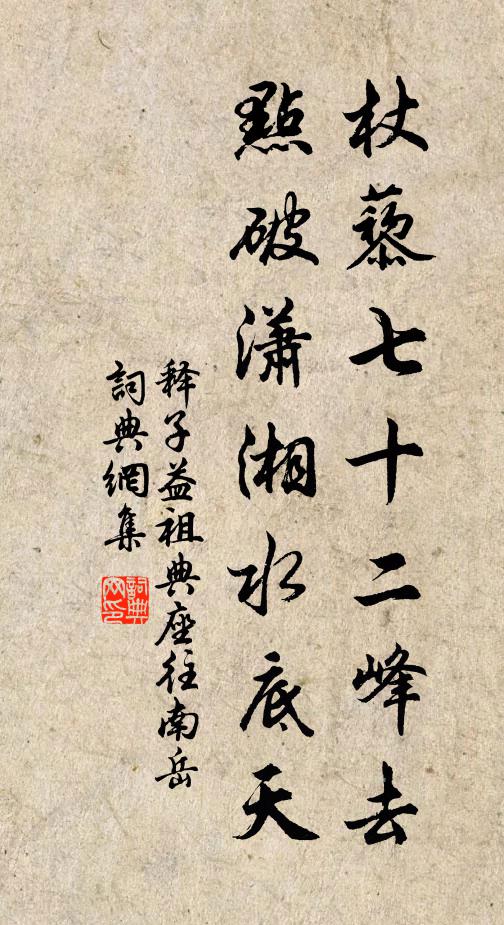 杖藜七十二峰去
點破瀟湘水底天
释子益祖典座往南岳
詞典網集
詞典網印